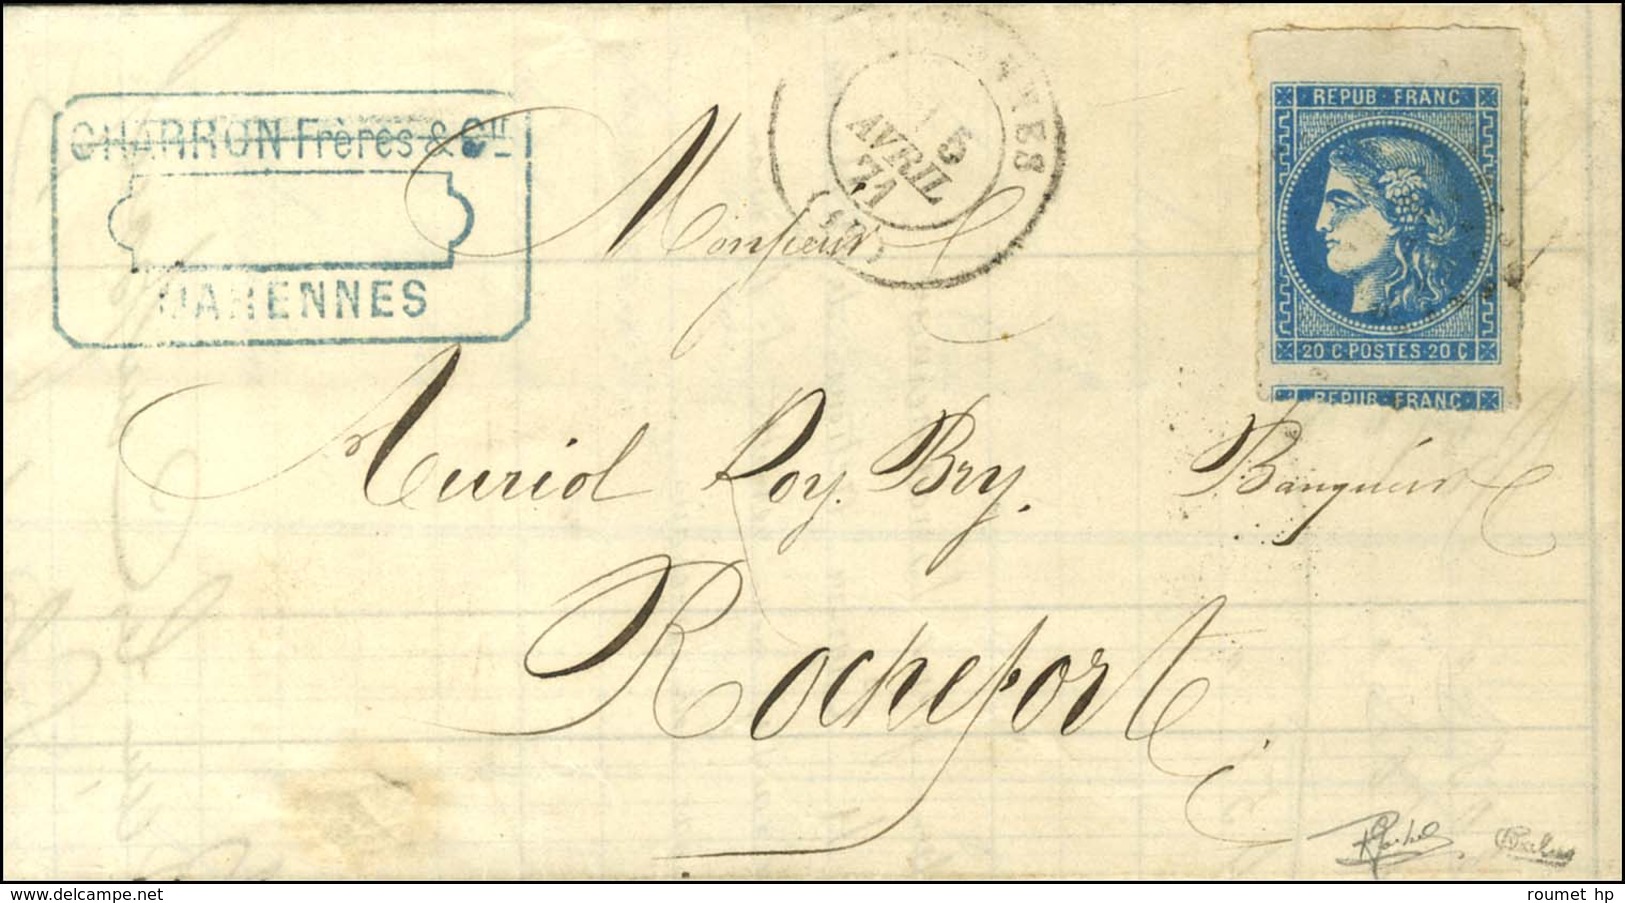 CHARRON Frères & Cie
MARENNES
15
AVRIL
71
REPUB. FRANC.
20 C. POSTES 20 C.
REPUB. FRANC.
Monsieur
Auriol Roy. Bry. Banquier
Rochefort
www.delcampe.net
roumet hp